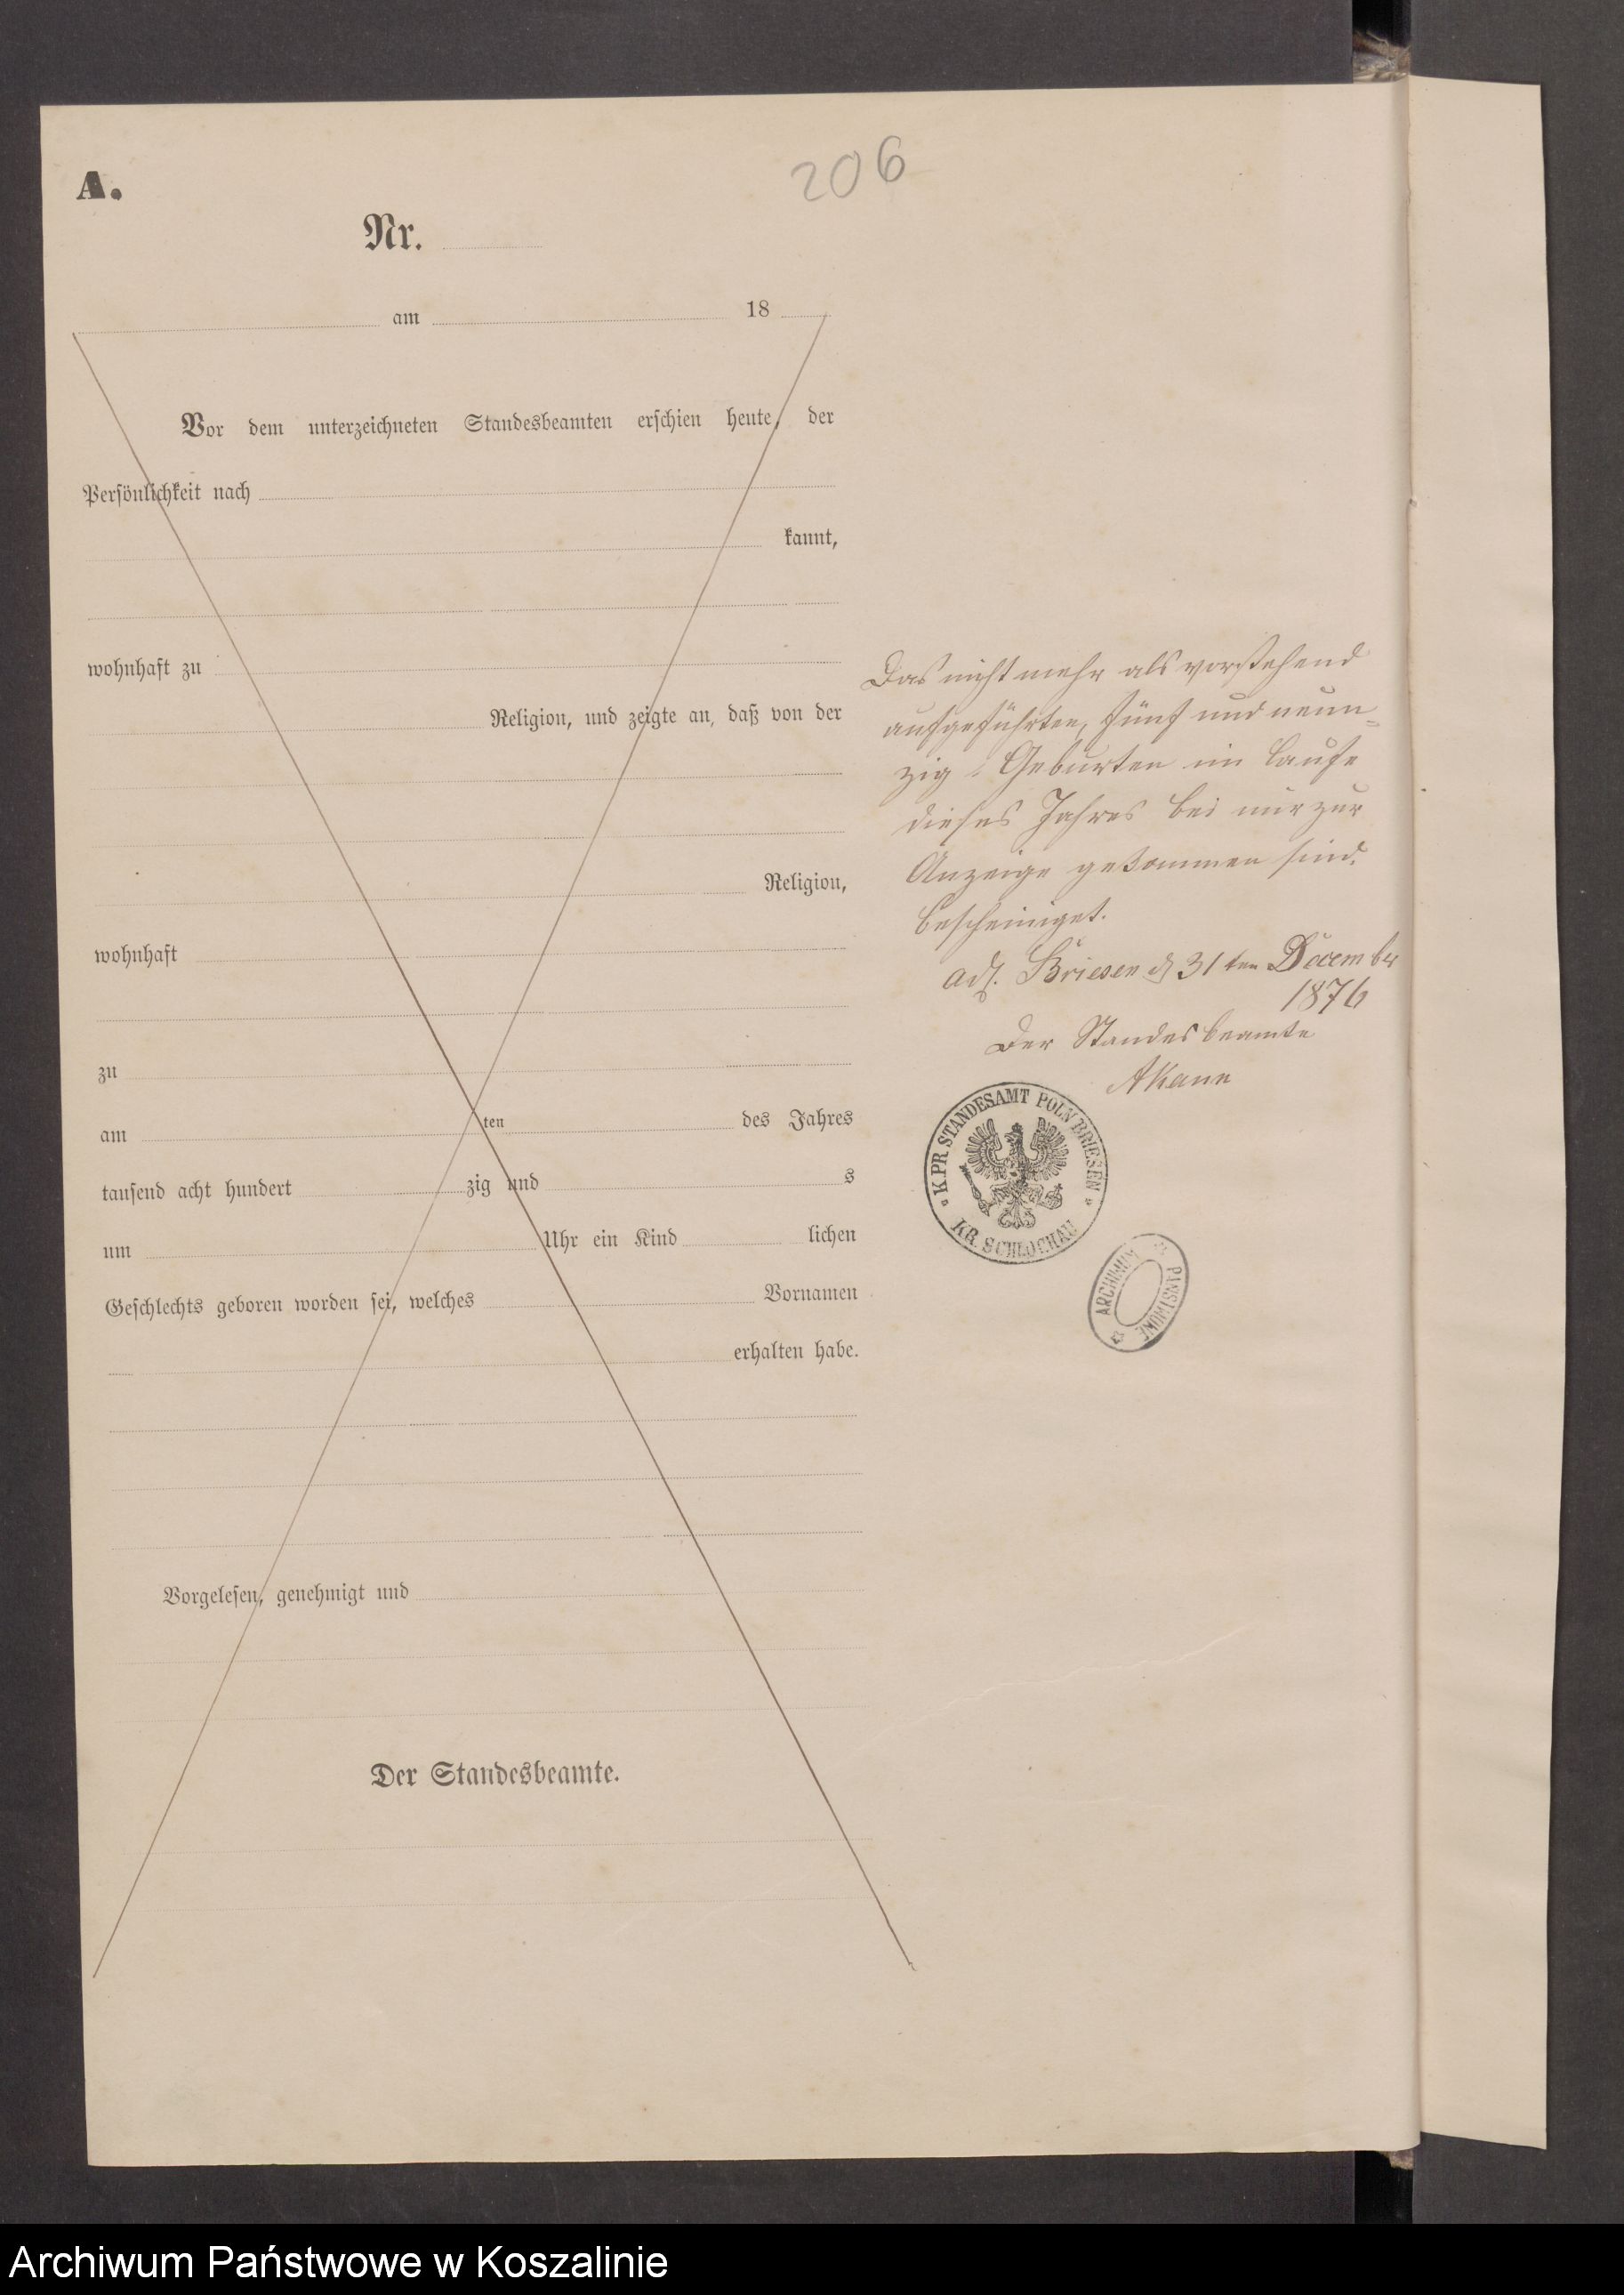 206
A.
Nr.
am 18
Vor dem unterzeichneten Standesbeamten erschien heute, der
Persönlichkeit nach
kannt,
wohnhaft zu
Religion, und zeigte an, daß von der
Religion,
wohnhaft
zu
am ten des Jahres
tausend acht hundert zig und s
um Uhr ein Kind lichen
Geschlechts geboren worden sei, welches Vornamen
erhalten habe.
Vorgelesen, genehmigt und
Der Standesbeamte.
Das nicht mehr als vorstehend
aufgeführten, fünf und neun=
zig Geburten im Laufe
dieses Jahres bei mir zur
Anzeige gekommen sind.
bescheiniget.
Briesen d 31ten December
1876
Der Standesbeamte
AKann
K. PR. STANDESAMT POLN BRIESEN
KR. SCHLOCHAU
ARCHIWUM PAŃSTWOWE
Archiwum Państwowe w Koszalinie